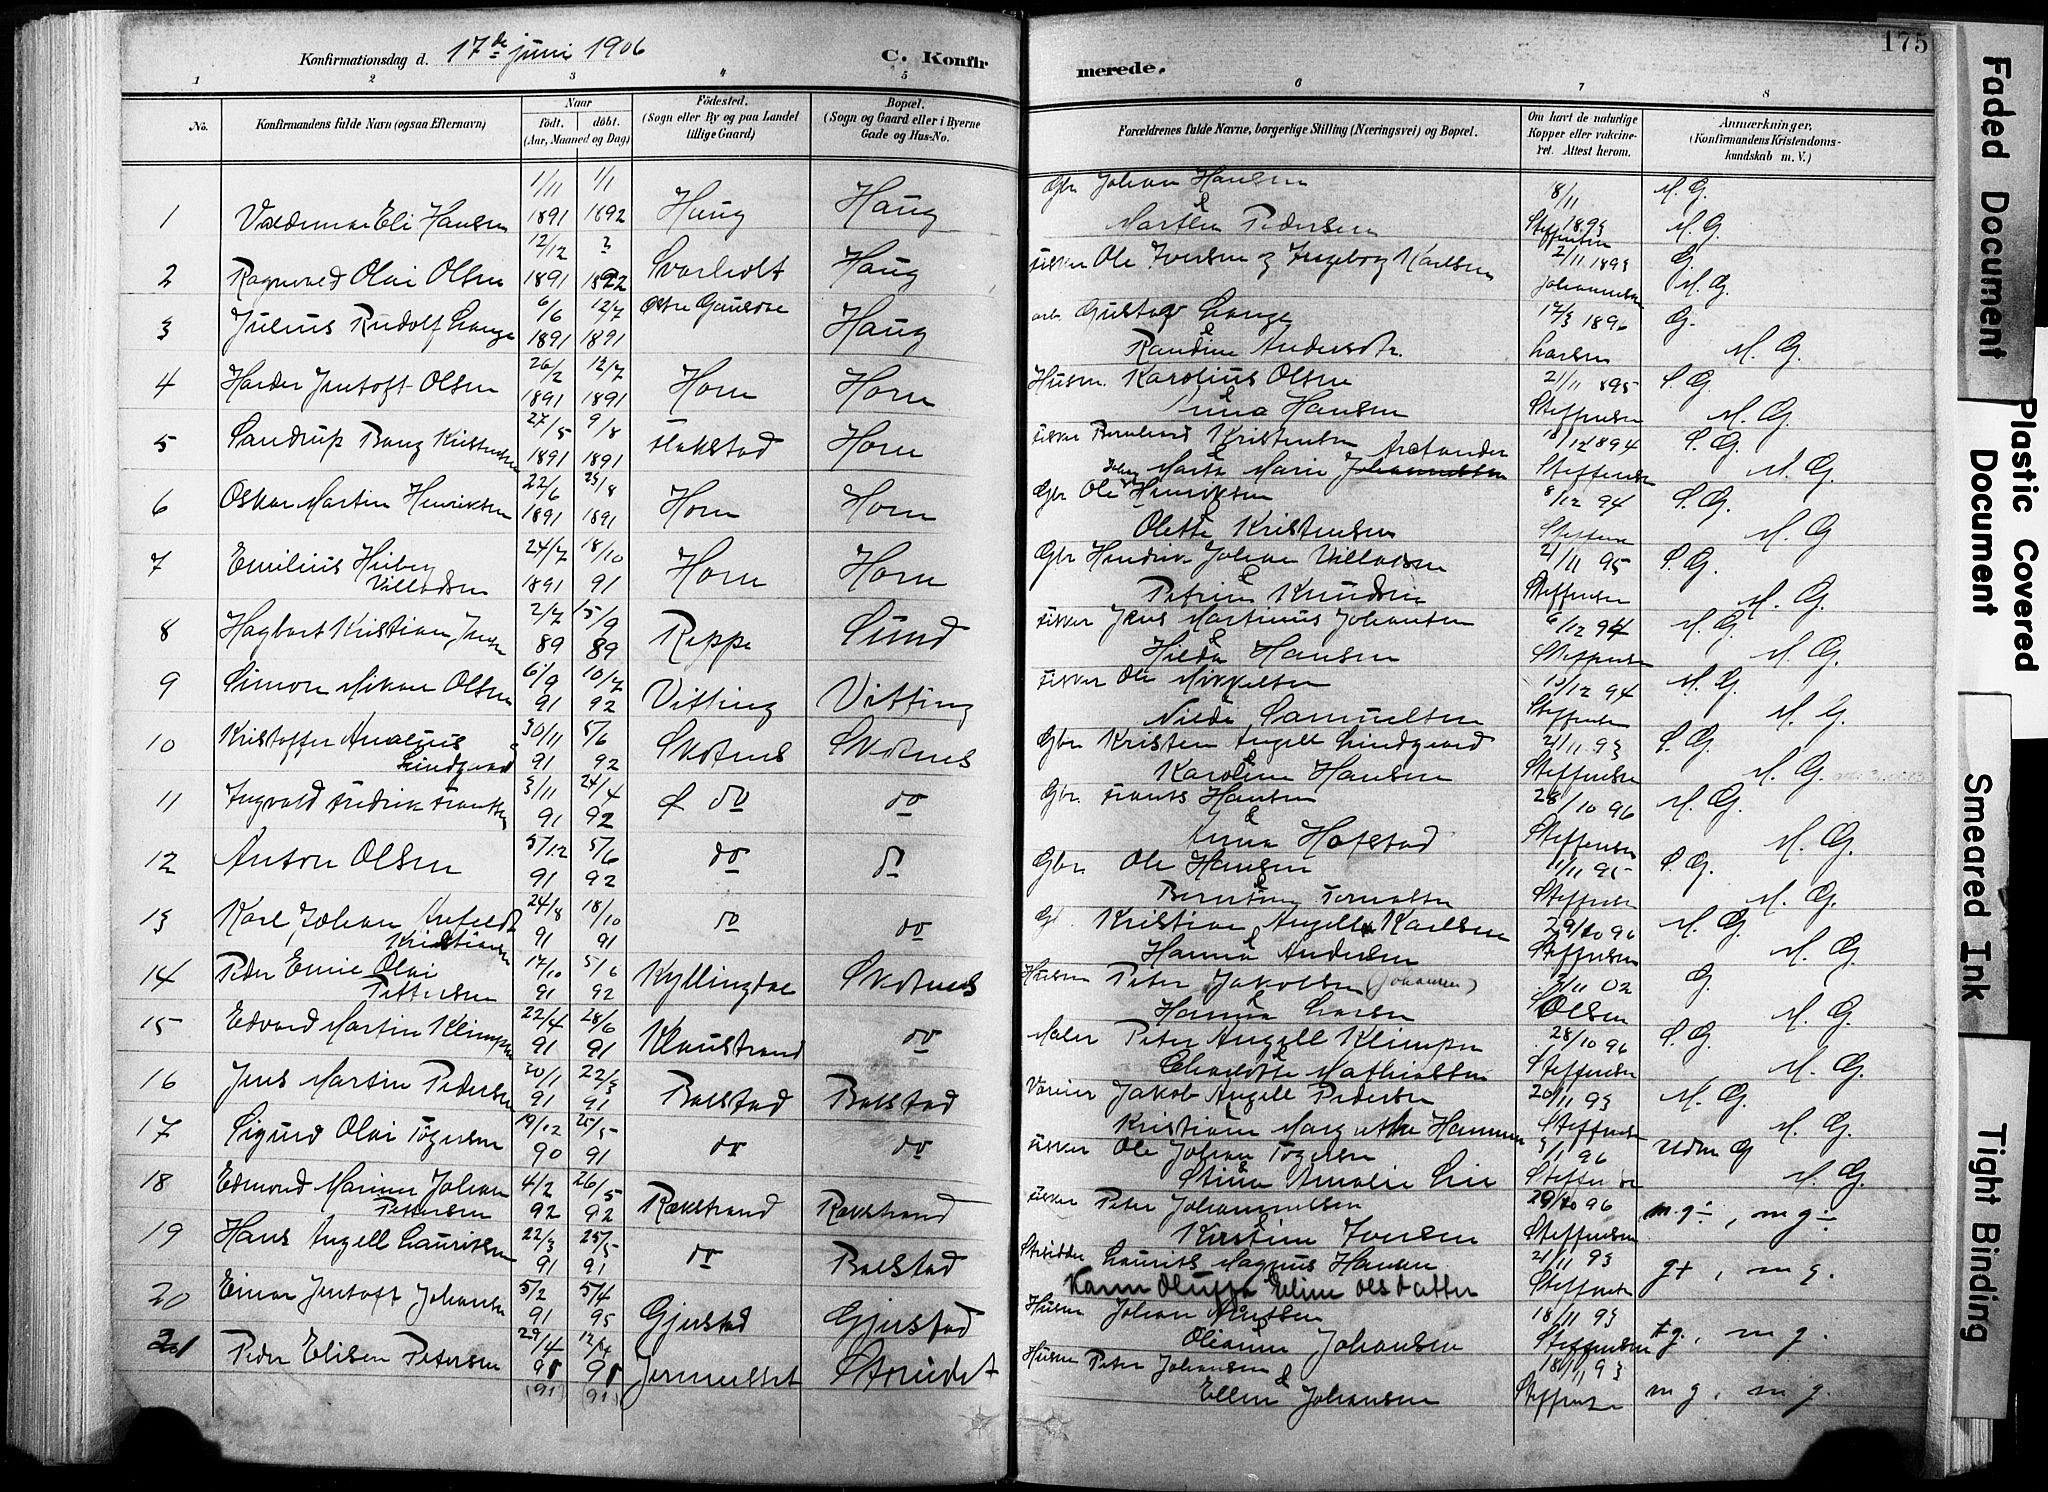 Konfirmationsdag d. 17de juni 1906
C. Konfir
merede.
175
1 2 3 4 5 6 7 8
No.
Konfirmandens fulde Navn (ogsaa Efternavn)
Naar
født. døbt.
(Aar, Maaned og Dag)
Födested.
(Sogn eller By og paa Landet
tillige Gaard)
Bopæl.
(Sogn og Gaard eller i Byerne
Gade og Hus-No.
Forældrenes fulde Navne, borgerlige Stilling (Næringsvei) og Bopæl.
Om havt de naturlige
Kopper eller vaccine-
ret. Attest herom.
Anmærkninger,
(Konfirmandens Kristendoms-
kundskab m. V.)
1/11 1/1 Gbr Johan Hansen 8/11 M. G.
1 Valdemar Eli Hansen 1891 1892 Haug Haug & Martha Pedersen 1893 M. G.
Steffensen
12/12 ? fisker Ole Iversen & Ingeborg Karlsen 2/11 1893 G.
2 Ragnvald Olai Olsen 1891 1892 Svarholt Haug Johannesen M. G.
6/6 12/7 arb. Gustav Lange 17/3 1896 G.
3 Julius Rudolf Lange 1891 1891 Østre Gausdal Haug & Randine Andersdtr. Larsen M. G.
26/2 12/7 Husm. Karolius Olsen 21/11 895 S. G.
4 Harder Jentoft Olsen 1891 1891 Horn Horn Hansen Steffensen M. G.
27/5 9/8 fisker Bernhard Kristensen 12 894 S. G.
5 Sandrup Bang Kristensen 1891 1891 Flakstad Horn & Marta Marie Johannessen Arctander Steffensen M. G.
22/6 23/8 Gbr Ole Henriksen 8/12 94 S. G.
6 Oskar Martin Henriksen 1891 1891 Horn Horn Olette Kristensen M. G
24/7 18/10 Gbr Hendrik Johan Villadsen 21/11 95 S. G.
7 Emilius Hiberg Villadsen 1891 91 Horn Horn & Petrine Knudsen Steffensen M. G.
2/7 15/9 fisker Jens Martinus Johansen 6/12 94 M. G.
8 Hagbart Kristian Jensen 89 89 Reppe Sund & Hilda Hansen Steffensen M. G.
6/9 10/7 fisker Ole Mikkelsen 12 94 M. G.
9 Simon Mikal Olsen 91 92 Vitting Vitting Samuelsen Steffensen M. G.
30/11 5/6 Gbr Kristen Angell Lindgaard 21/11 93 S. G.
10 Kristoffer Analius Lindgaard 91 92 Skotnes Skotnes & Karoline Hansen Steffensen M. G.
3/11 24/4 Gbr. Frants Hansen 28/10 96 M. G.
11 Ingvald Fredrik Frantsen 91 92 do do & Anna Hofstad Steffensen M. G.
5/12 5/6 Gbr. Ole Hansen 1/11 95 S. G.
12 Anton Olsen 91 92 do do Steffensen M. G.
24/8 18/10 Kristian Angell Karlsen 29/10 96 M. G
13 Karl Johan Kristiansen 91 91 do do Hanna & Andersen Steffensen M. G.
17/10 5/6 Husm Peter Jakobsen (Johansen) 11 02 G.
14 Peder Emil Olai Pettersen 91 92 Kyllingdal Skotnes & Hanna Larsen Olsen M. G.
22/4 28/6 Maler Peter Angell Klimpen 28/10 96 S. G.
15 Edvard Martin Klimpen 91 91 Klaustrand do Charlotte Mathiassen Steffensen M. G.
20/1 22/3 Jakob Angell Pedersen 20/11 93 M. G.
16 Jens Martin Pedersen 91 91 Balstad Balstad Kristiane Margrethe Hammer Steffensen M. G.
19/12 25/5 fisker Ole Johan Tøgersen 3/1 96 Udm G
17 Sigurd Olai Tøgersen 90 91 do do Stina Amalie Lie Steffensen M. G.
4/2 26/5 fisker Peter Johannessen 29/10 96 m.g÷, mg÷
18 Edmond Marino Johan Petersen 92 92 Rækstrand Rækstrand & Kirstine Iversen Steffensen
22/3 25/5 Laurits Magnus Hansen 21/11 93 g+, mg.
19 Hans Angell Lauritsen 91 91 do Balstad Karen Oluffa Eline Olsdatter Steffensen
5/2 5/4 Husm Johan Knutsen 18/11 93 tg., mg.
20 Einar Jentoft Johansen 91 95 Gjerstad Gjerstad Oleanna Johansen Steffensen
29/4 12/4 Husm Peter Johansen 18/11 93
21 Peder Elisen Petersen 91 91 Jermesset Strudet & Ellen Johansen Steffensen mg, mg.
(91) (91)
Faded Document
Plastic Covered
Document
Smeared Ink
Tight Binding